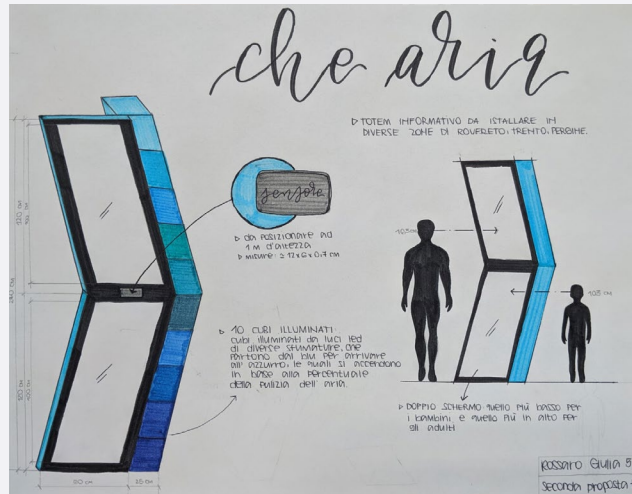 che aria
▷ TOTEM INFORMATIVO DA ISTALLARE IN
DIVERSE ZONE DI ROVERETO, TRENTO, PERGINE.
sensore
▷ da posizionare ad
1 m d'altezza
▷ misure: ≥ 12x6x0.7 cm
▷ 10 CUBI ILLUMINATI:
cubi illuminati da luci led
di diverse sfumature, che
partono dal blu per arrivare
all'azzurro, le quali si accendono
in base alla percentuale
della pulizia dell'aria.
▷ DOPPIO SCHERMO: quello più basso per
i bambini e quello più in alto per
gli adulti
120 cm
60 cm
Rossaro Giulia 5
Seconda proposta